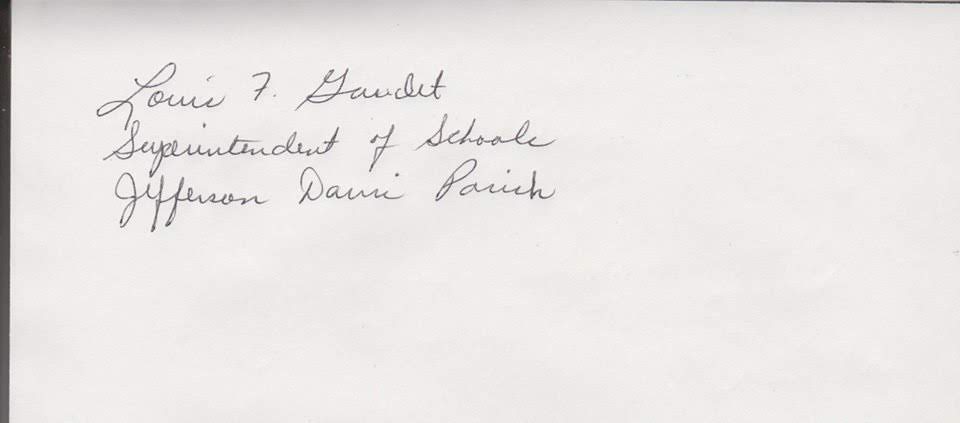 Louis F. Gaudet
Superintendent of Schools
Jefferson Davis Parish